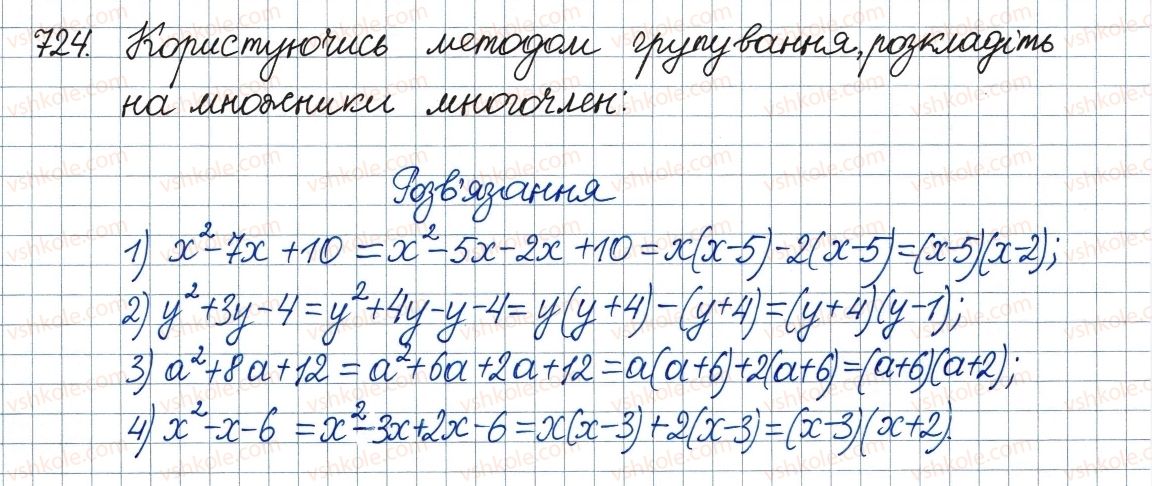 724. Користуючись методом групування, розкладіть
на множники многочлен:
Розв'язання
1) x²-7x+10=x²-5x-2x+10=x(x-5)-2(x-5)=(x-5)(x-2);
2) y²+3y-4=y²+4y-y-4=y(y+4)-(y+4)=(y+4)(y-1);
3) a²+8a+12=a²+6a+2a+12=a(a+6)+2(a+6)=(a+6)(a+2);
4) x²-x-6=x²-3x+2x-6=x(x-3)+2(x-3)=(x-3)(x+2).
vshkole.com